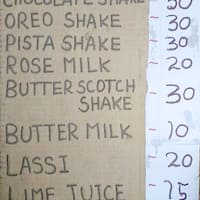 CHOCOLATE SHAKE - 50
OREO SHAKE - 30
PISTA SHAKE - 30
ROSE MILK - 20
BUTTER SCOTCH
SHAKE - 30
BUTTER MILK - 10
LASSI - 20
LIME JUICE - 15